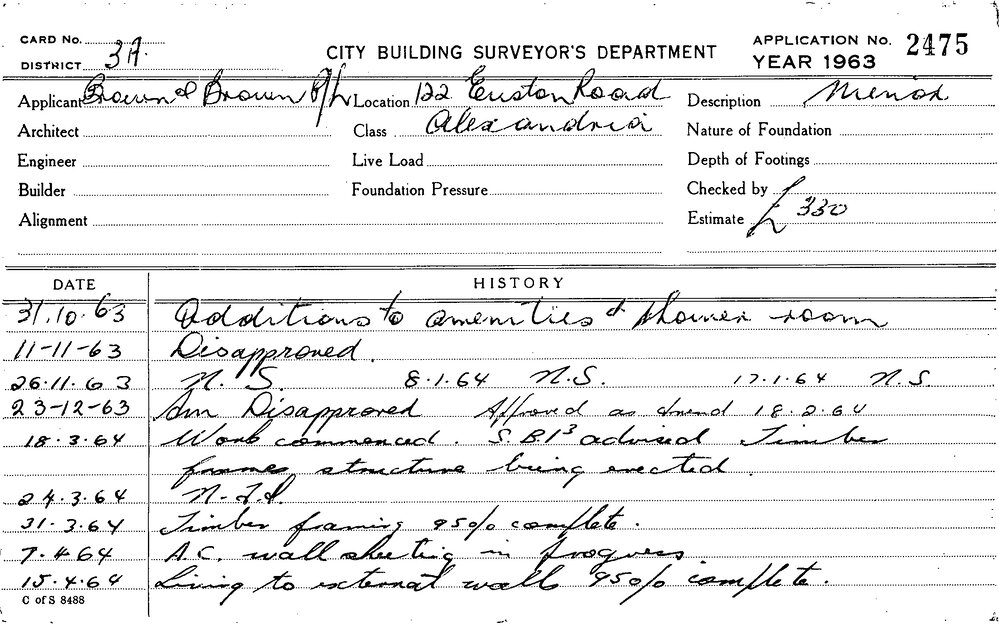 CARD No.
CITY BUILDING SURVEYOR'S DEPARTMENT
APPLICATION No. 2475
DISTRICT 3A.
YEAR 1963
Applicant Brown & Brown P/L Location 122 Euston Road Description Minor
Architect Class Alexandria Nature of Foundation
Engineer Live Load Depth of Footings
Builder Foundation Pressure Checked by
Alignment Estimate £ 330
DATE HISTORY
31.10.63 Additions to amenities & shower room
11-11-63 Disapproved.
26.11.63 N.S. 8.1.64 N.S. 17.1.64 N.S.
23-12-63 Am Disapproved Approved as Amend 18.2.64
18.3.64 Work commenced. S.B.I³ advised Timber
frames structure being erected.
24.3.64
31.3.64 Timber framing 95% complete.
7.4.64 A.C. wall sheeting in progress
15.4.64 Lining to external walls 95% complete.
C of S 8488